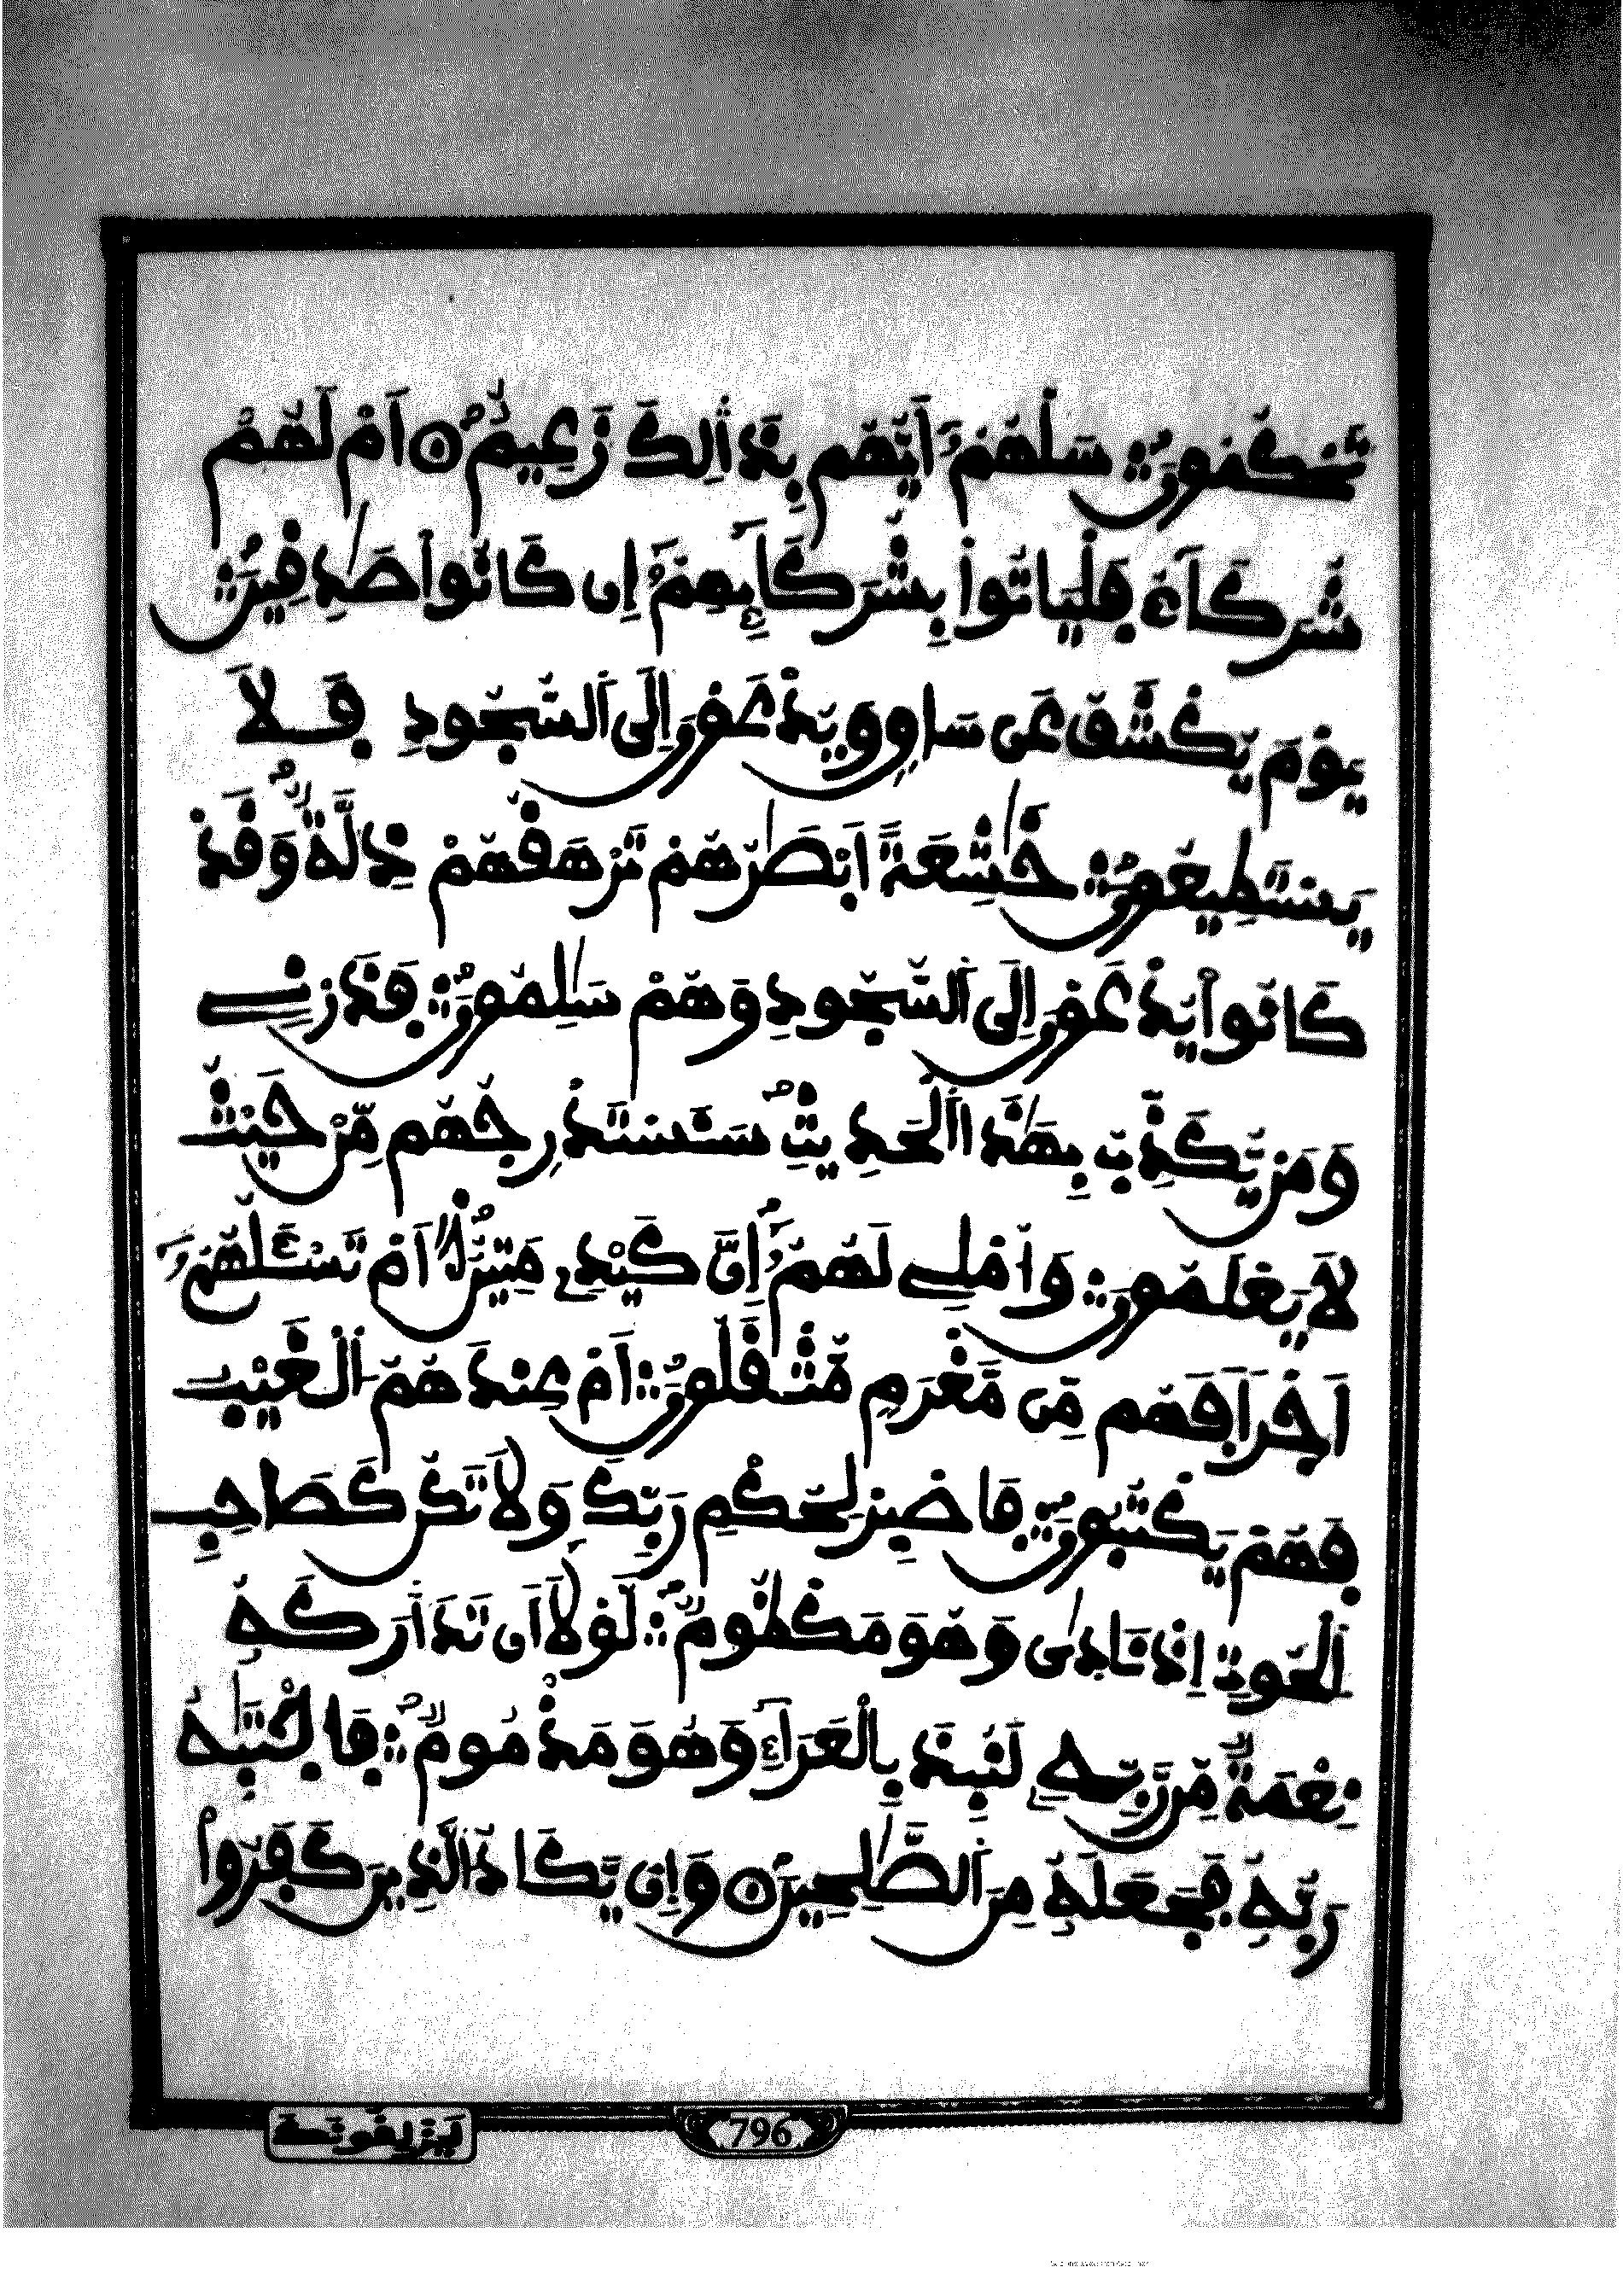 تَحْكُمُونَ ۞ سَلْهُمُۥٓ أَيُّهُم بِذَٰلِكَ زَعِيمٌ ۞ أَمْ لَهُمْ
شُرَكَآءُ فَلْيَاتُوا۟ بِشُرَكَآئِهِمُۥٓ إِن كَانُوا۟ صَٰدِقِينَ ۞
يَوْمَ يُكْشَفُ عَن سَاقٍ وَيُدْعَوْنَ إِلَى ٱلسُّجُودِ فَلَا
يَسْتَطِيعُونَ ۞ خَٰشِعَةً أَبْصَٰرُهُمْ تَرْهَقُهُمْ ذِلَّةٌ وَقَدْ
كَانُوا۟ يُدْعَوْنَ إِلَى ٱلسُّجُودِ وَهُمْ سَٰلِمُونَ ۞ فَذَرْنِے
وَمَن يُّكَذِّبُ بِهَٰذَا ٱلْحَدِيثِ سَنَسْتَدْرِجُهُم مِّنْ حَيْثُ
لَا يَعْلَمُونَ ۞ وَأُمْلِے لَهُمُۥٓ إِنَّ كَيْدِے مَتِينٌ ۞ أَمْ تَسْـَٔلُهُمُۥٓ
أَجْرًا فَهُم مِّن مَّغْرَمٍ مُّثْقَلُونَ ۞ أَمْ عِندَهُمُ ٱلْغَيْبُ
فَهُمْ يَكْتُبُونَ ۞ فَاصْبِرْ لِحُكْمِ رَبِّكَ وَلَا تَكُن كَصَاحِبِ
ٱلْحُوتِ إِذْ نَادَىٰ وَهُوَ مَكْظُومٌ ۞ لَّوْلَآ أَن تَدَٰرَكَهُۥ
نِعْمَةٌ مِّن رَّبِّهِۦ لَنُبِذَ بِالْعَرَآءِ وَهُوَ مَذْمُومٌ ۞ فَاجْتَبَٰهُ
رَبُّهُۥ فَجَعَلَهُۥ مِنَ ٱلصَّٰلِحِينَ ۞ وَإِن يَّكَادُ ٱلَّذِينَ كَفَرُوا۟
لَيُزْلِقُونَكَ
796